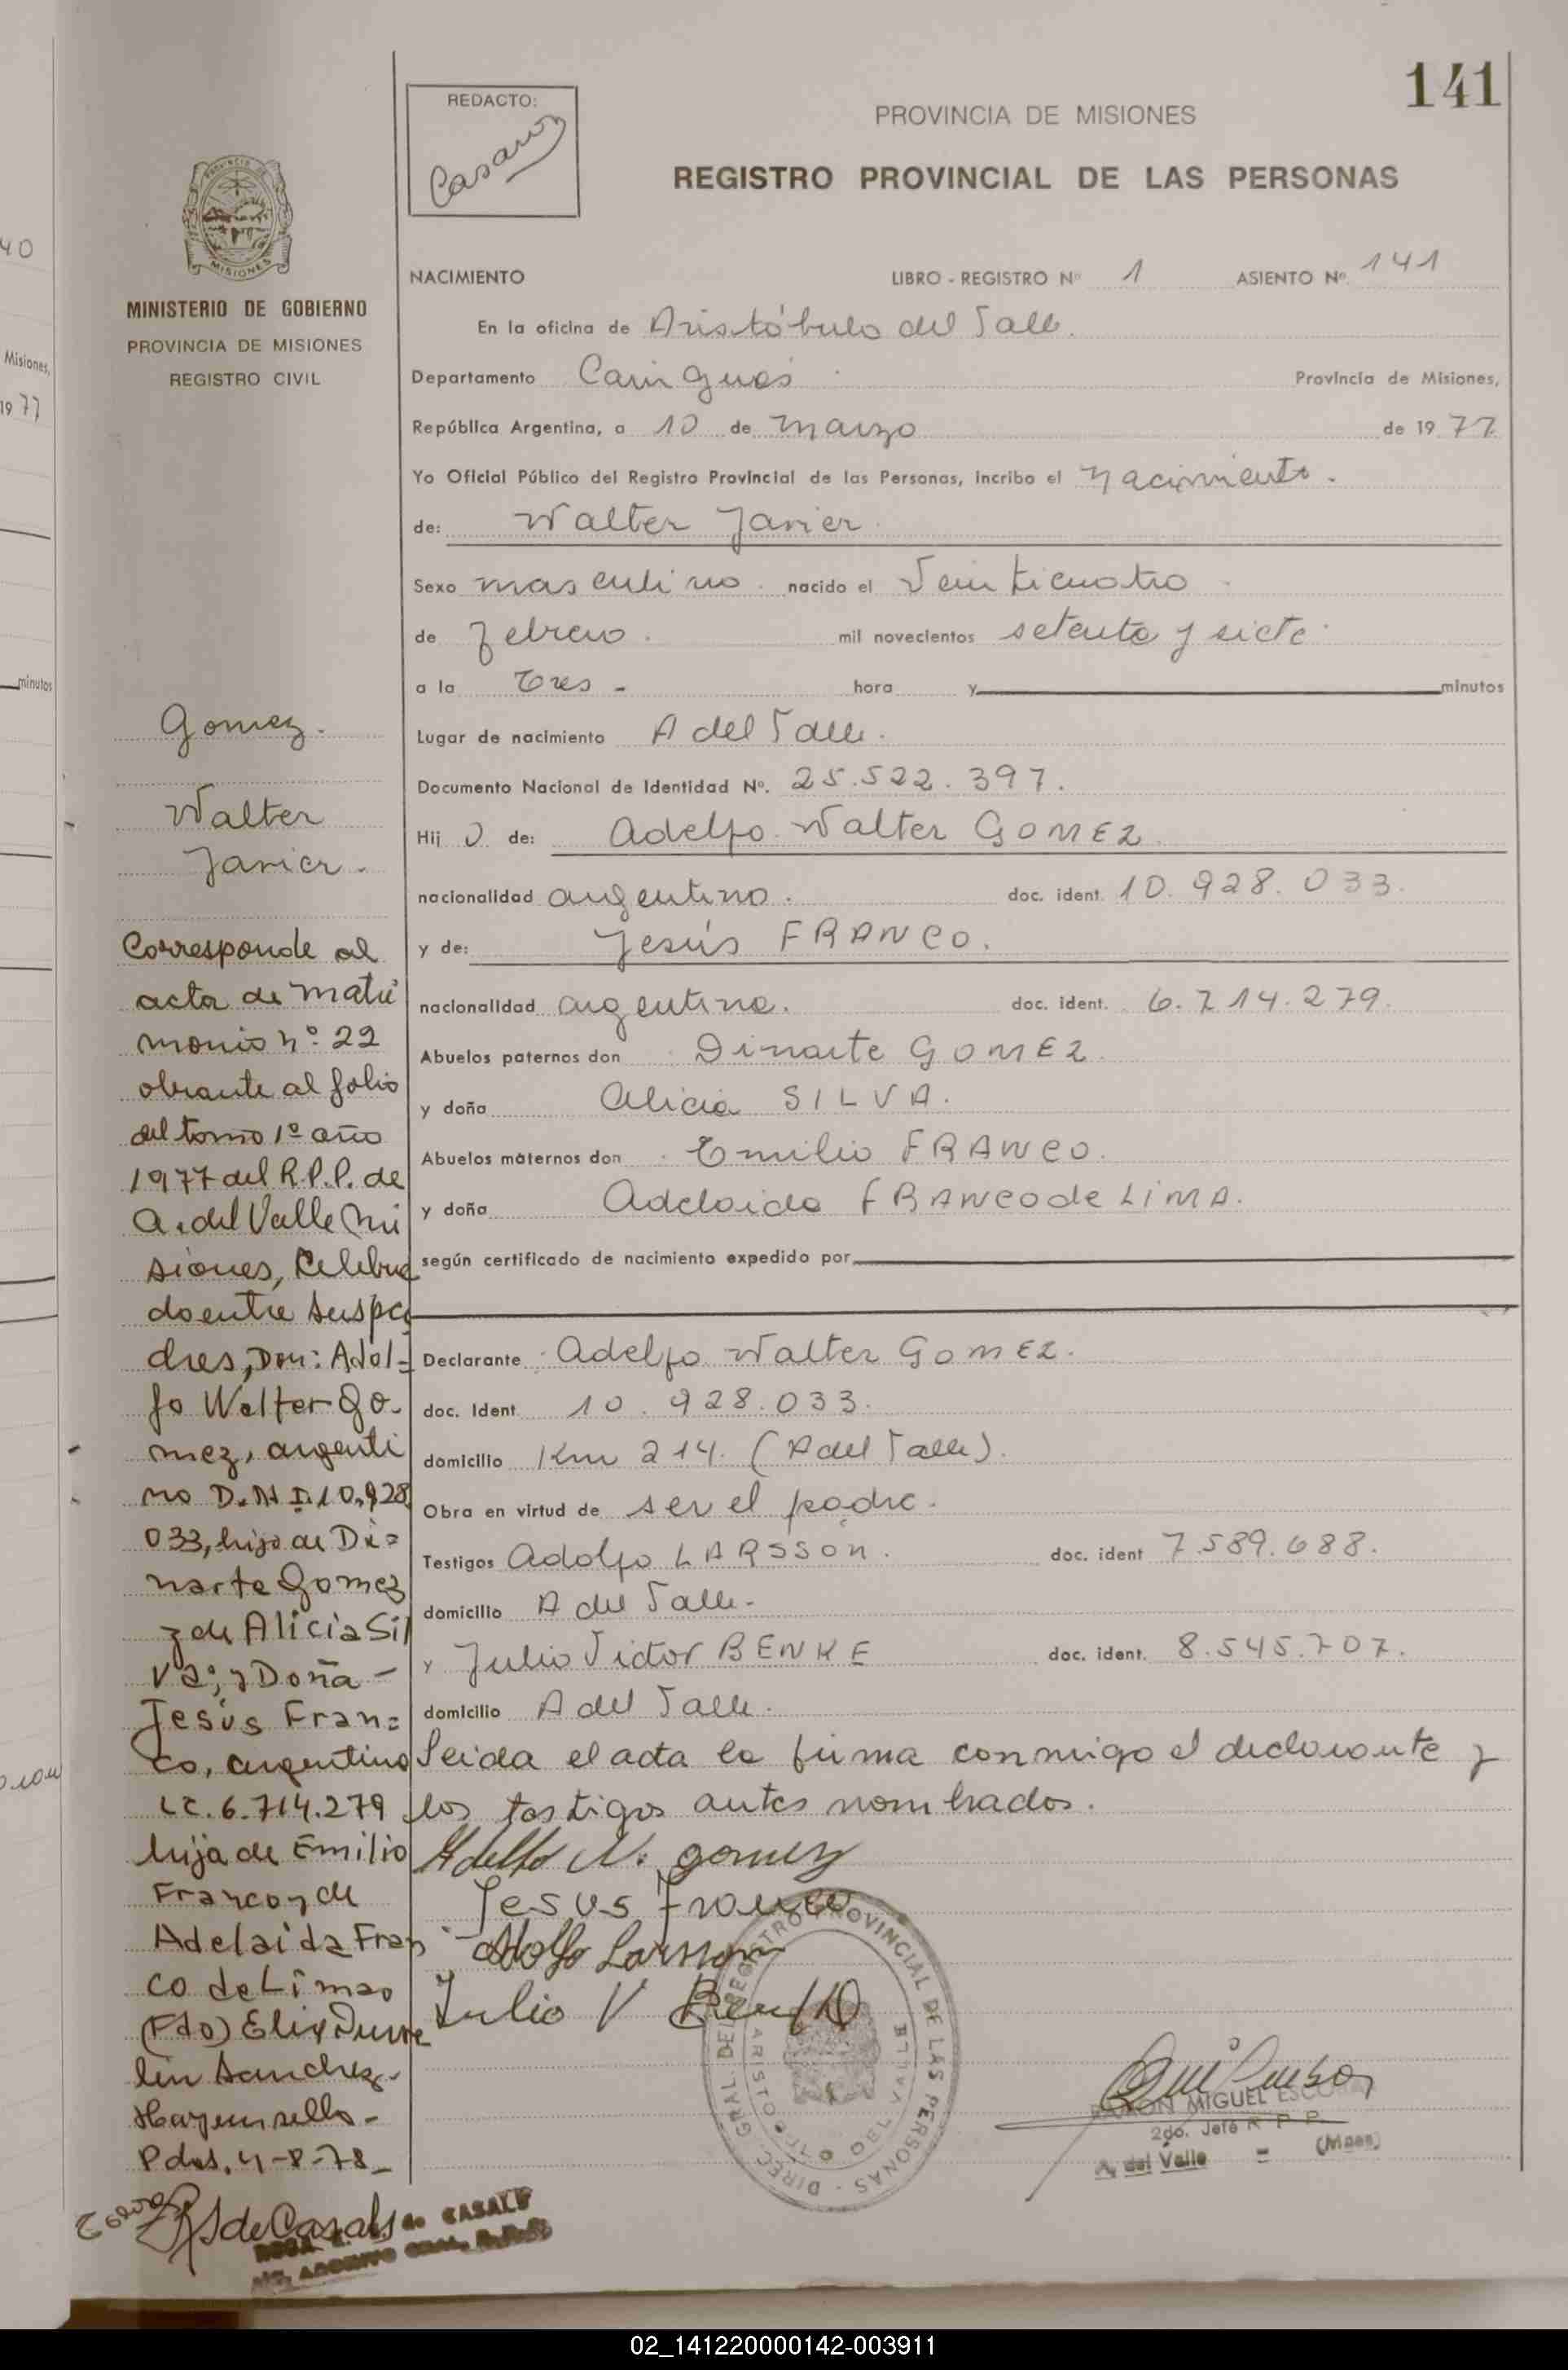 141
REDACTO:
Casaro
PROVINCIA DE MISIONES
REGISTRO PROVINCIAL DE LAS PERSONAS
PROVINCIA DE
MISIONES
MINISTERIO DE GOBIERNO
PROVINCIA DE MISIONES
REGISTRO CIVIL
40
Misiones,
19 77
minutos
NACIMIENTO LIBRO - REGISTRO Nº 1 ASIENTO Nº. 141
En la oficina de Aristóbulo del Valle.
Departamento Cainguás Provincia de Misiones,
República Argentina, a 10 de Marzo de 19 77
Yo Oficial Público del Registro Provincial de las Personas, incribo el Nacimiento.
de: Walter Javier.
Sexo masculino. nacido el Veinticuatro
de febrero. mil novecientos setenta y siete.
a la Tres - hora y minutos
Lugar de nacimiento A del Valle.
Documento Nacional de Identidad Nº. 25.522.397.
Hij o de: Adelfo Walter GOMEZ.
nacionalidad argentino. doc. ident. 10.928.033.
y de: Jesús FRANCO.
nacionalidad argentina. doc. ident. 6.714.279.
Abuelos paternos don Dinarte GOMEZ.
y doña Alicia SILVA.
Abuelos maternos don Emilio FRANCO.
y doña Adelaida FRANCO de LIMA.
según certificado de nacimiento expedido por
Declarante Adelfo Walter GOMEZ.
doc. Ident. 10.928.033.
domicilio Km 214. (A del Valle).
Obra en virtud de ser el padre.
Testigos Adolfo LARSSON. doc. ident 7.589.688.
domicilio A del Valle.
y Julio Victor BENKE doc. ident. 8.545.707.
domicilio A del Valle.
Leida el acta la firma conmigo el declarante y
los testigos antes nombrados.
Adelfo W. gomez
Jesus Franco
Adolfo Larsson
Julio V Benke
DIREC. GRAL. DEL REGISTRO PROVINCIAL DE LAS PERSONAS
ARISTOBULO DEL VALLE
RAMON MIGUEL ESCOBAR
2do. Jefe R P P
A. del Valle = (Mnes)
Gomez.
Walter
Javier.
Corresponde al
acta de matri
monio nº 22
obrante al folio
del tomo 1º año
1977 del R.P.P. de
A. del Valle Mi
siones, Celebra
do entre sus pa
dres, Don: Adol=
fo Walter Go-
mez, argenti
no D.N.I. 10.928
033, hijo de Di=
narte Gomez
y de Alicia Sil
va; y Doña -
Jesús Fran=
co, argentina
LC. 6.714.279
hija de Emilio
Franco y de
Adelaida Fran
co de Lima
(Fdo)
Sanchez.
Hay un sello -
Pdas. 4-8-78_
RS de Casals
ROSA S. de CASALS
ARCHIVO GRAL. R.P.P.
02_141220000142-003911